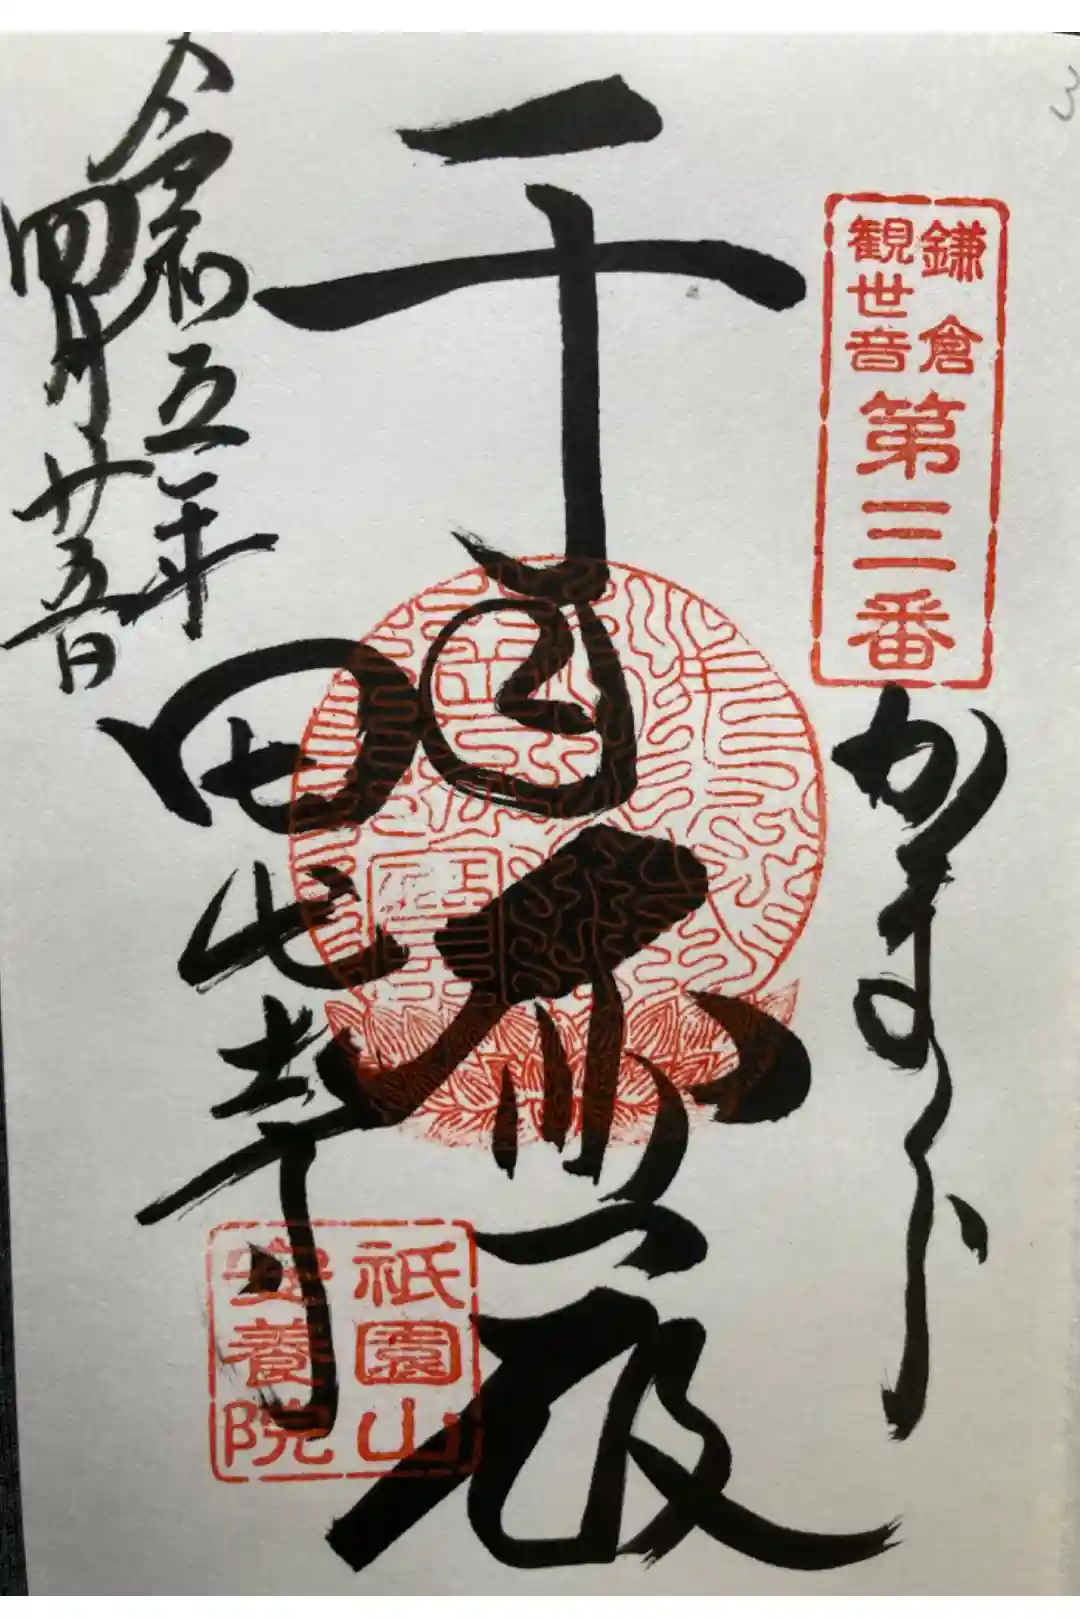 鎌倉
観世音
第三番
かまくら
千手大悲殿
田代寺
祇園山
安養院
令和五年
四月廿五日
3